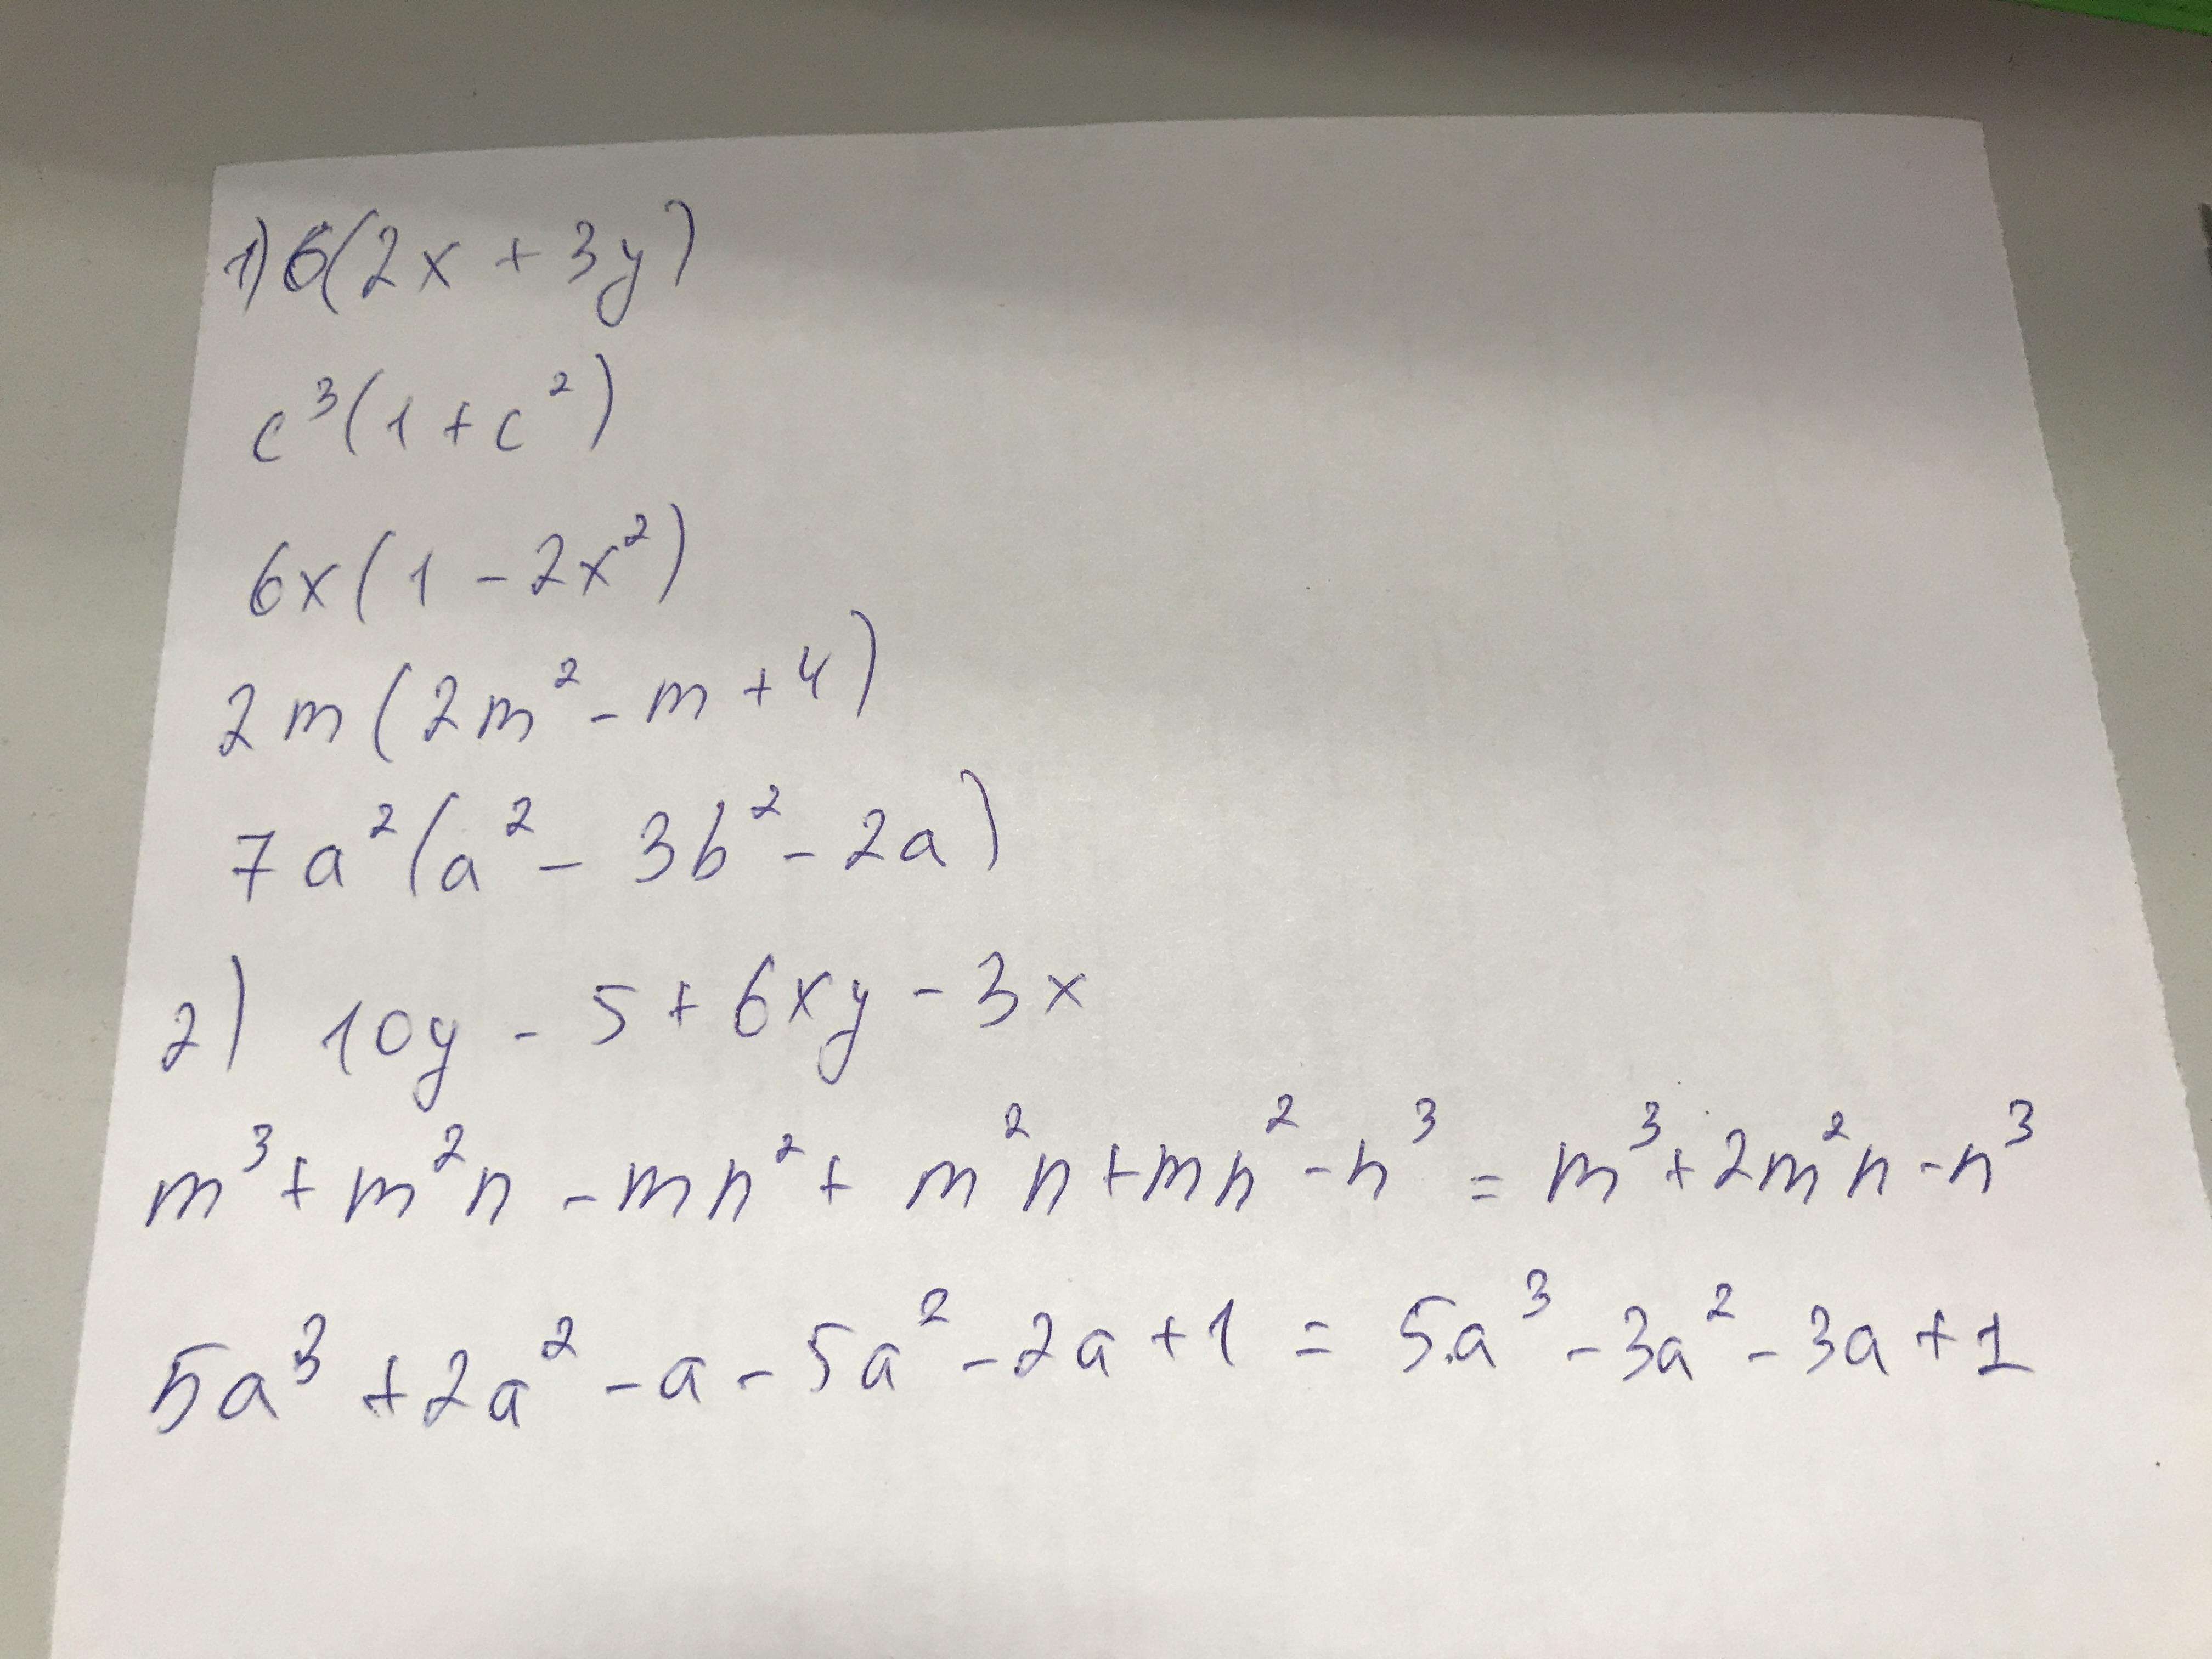 1) 6(2x + 3y)
c³(1 + c²)
6x(1 - 2x²)
2m(2m² - m + 4)
7a²(a² - 3b² - 2a)
2) 10y - 5 + 6xy - 3x
m³ + m²n - mn² + m²n + mn² - n³ = m³ + 2m²n - n³
5a³ + 2a² - a - 5a² - 2a + 1 = 5a³ - 3a² - 3a + 1